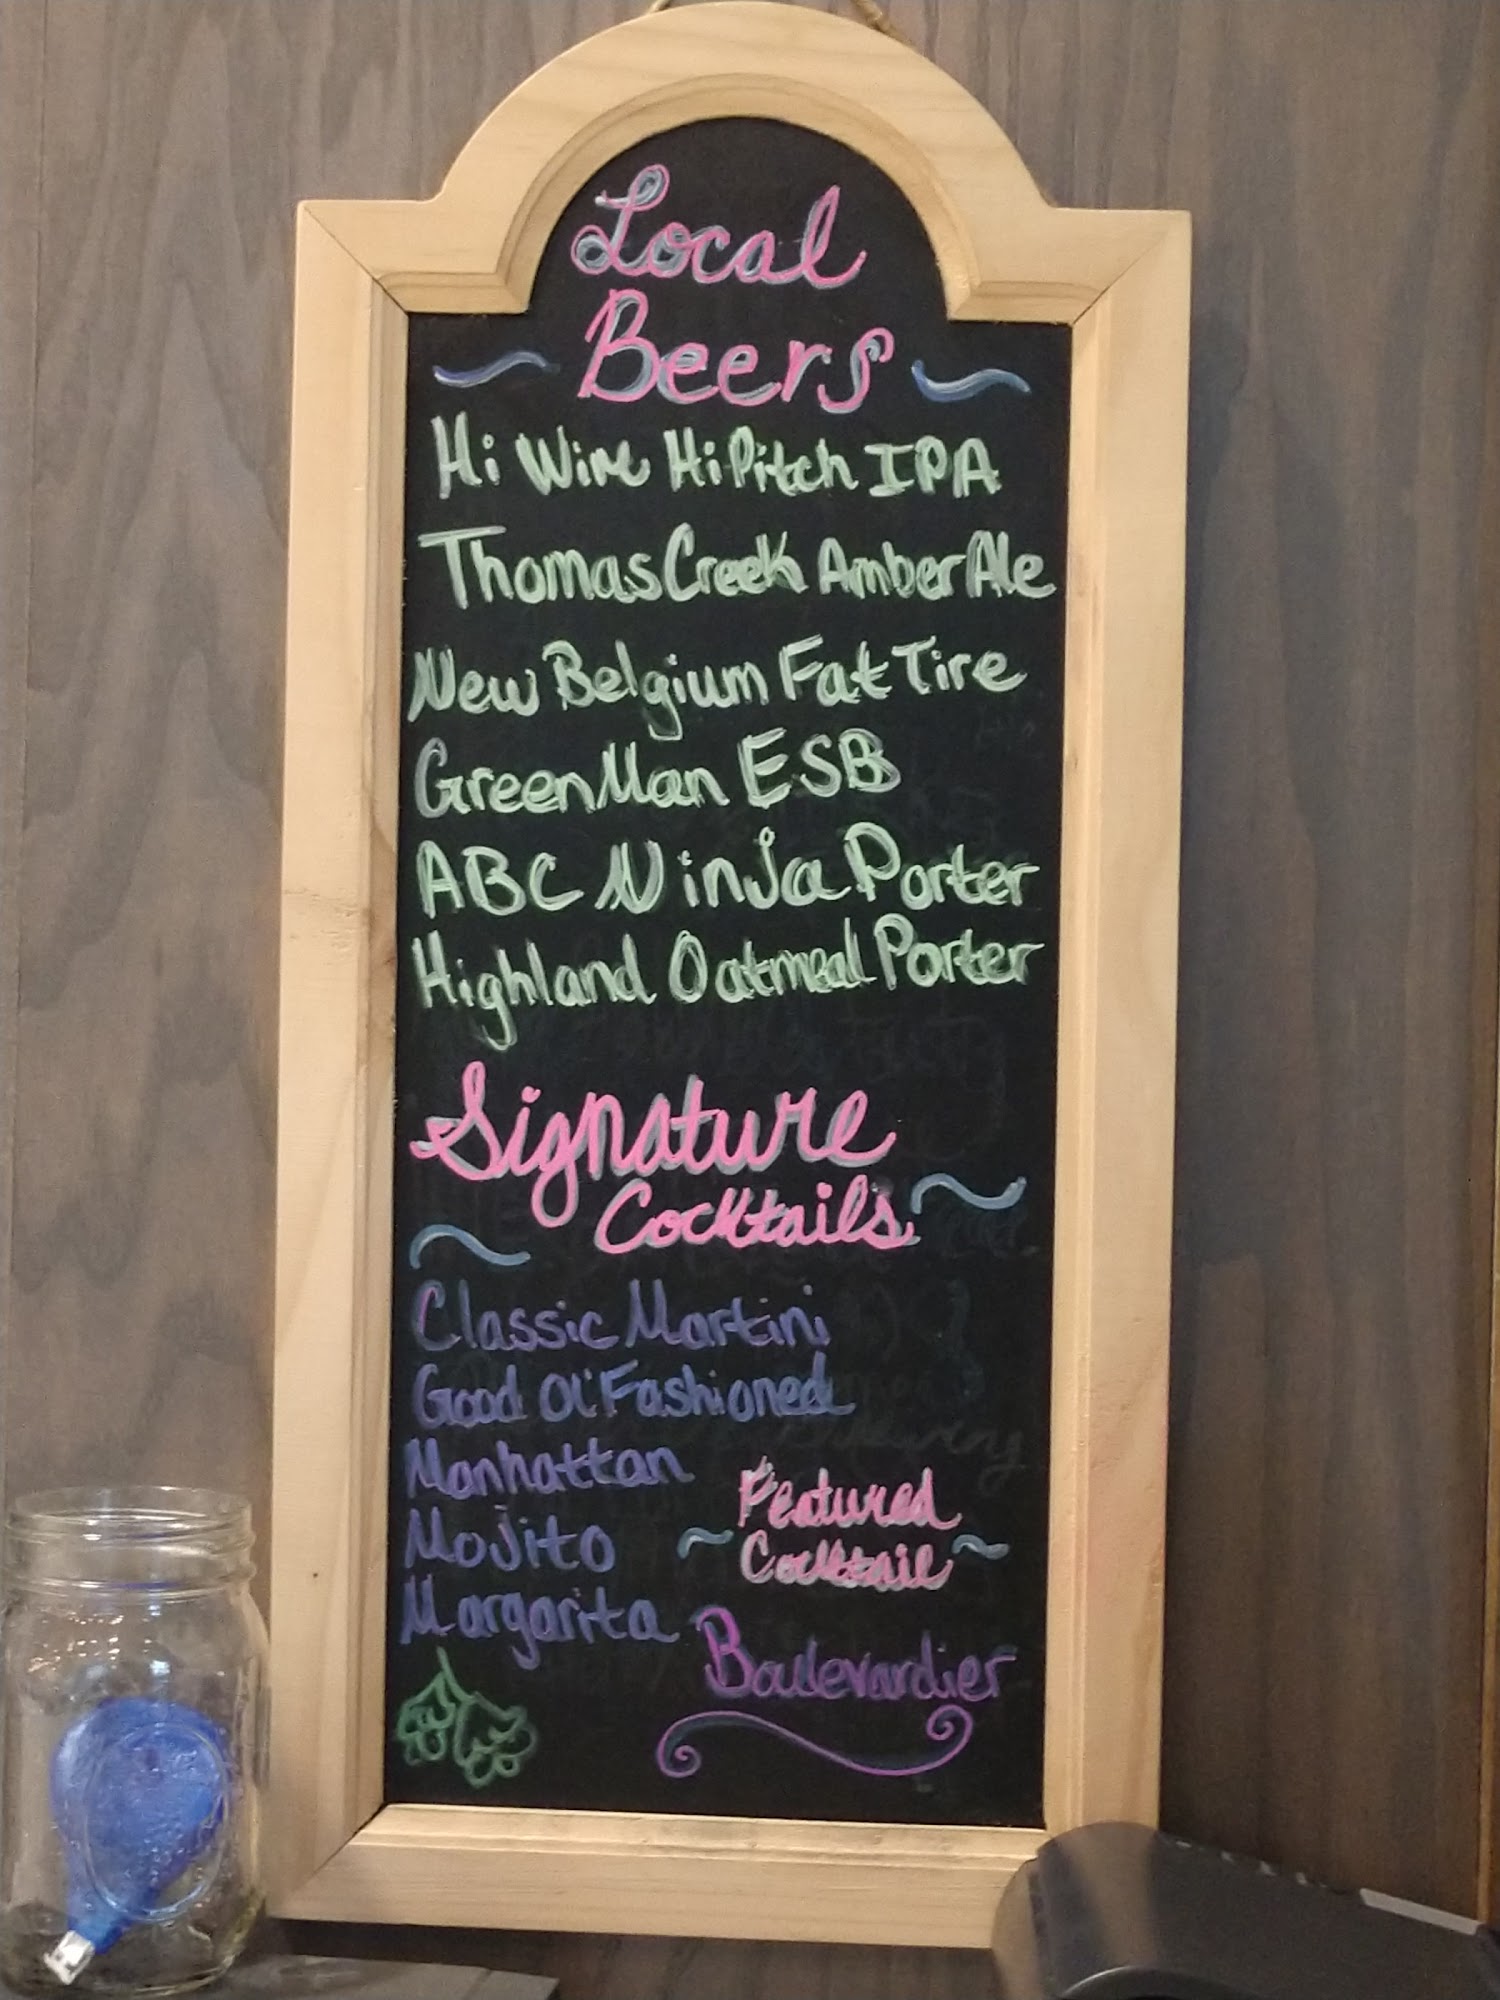 Local
Beers
Hi Wire Hi Pitch IPA
Thomas Creek Amber Ale
New Belgium Fat Tire
Green Man ESB
ABC Ninja Porter
Highland Oatmeal Porter
Signature
Cocktails
Classic Martini
Good Ol' Fashioned
Manhattan
Mojito
Margarita
Featured
Cocktail
Boulevardier